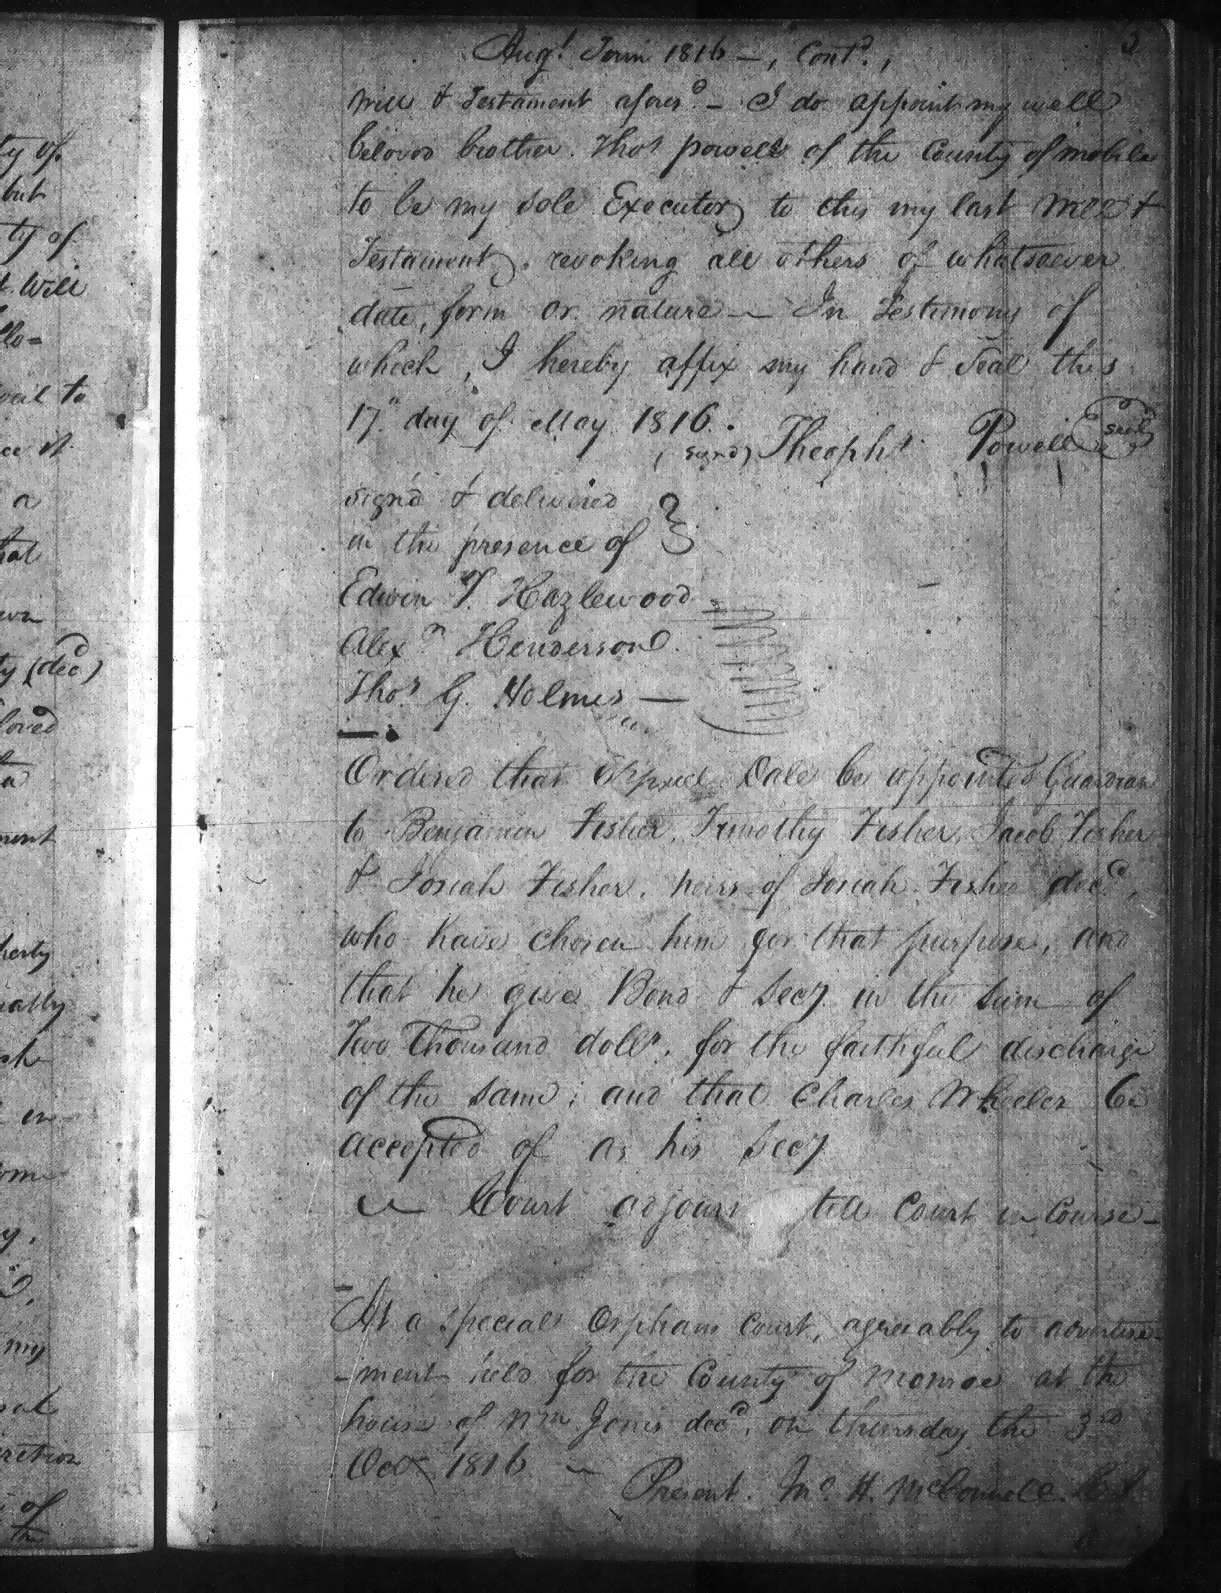 ty of
but
ty of
t. Will
llo=
a
hat
ty (decd)
loved
ment
perty
my
of
the
3
Augt. Term 1816 —, Contd.,
will & Testament aforesd. — I do appoint my well
beloved brother Thos powell of the County of mobile
to be my sole Executor to this my last Will &
Testament, revoking all others of whatsoever
date, form or nature — In Testimony of
which, I hereby affix my hand & Seal this
17" day of May 1816.
(signd) Theophs. Powell seal
sign'd & delivered
in the presence of
Edwin T. Hazlewood
Alexr. Henderson
Thos. G. Holmes —
Ordered that Dale be appointed Guardian
to Benjamin Fisher, Timothy Fisher, Jacob Fisher
& Josiah Fisher, heirs of Josiah Fisher decd.,
who have chosen him for that purpose, and
that he give Bond & Secy in the Sum of
Two Thousand dolls. for the faithful discharge
of the same; and that Charles Wheeler be
accepted of as his Secy
Court adjourn till Court in Course —
At a special Orphans Court, agreeably to advertise-
-ment held for the County of Monroe at the
house of Wm Jones decd. on thursday the 3rd
Octr. 1816 —
Present. Jno. H. McConnell